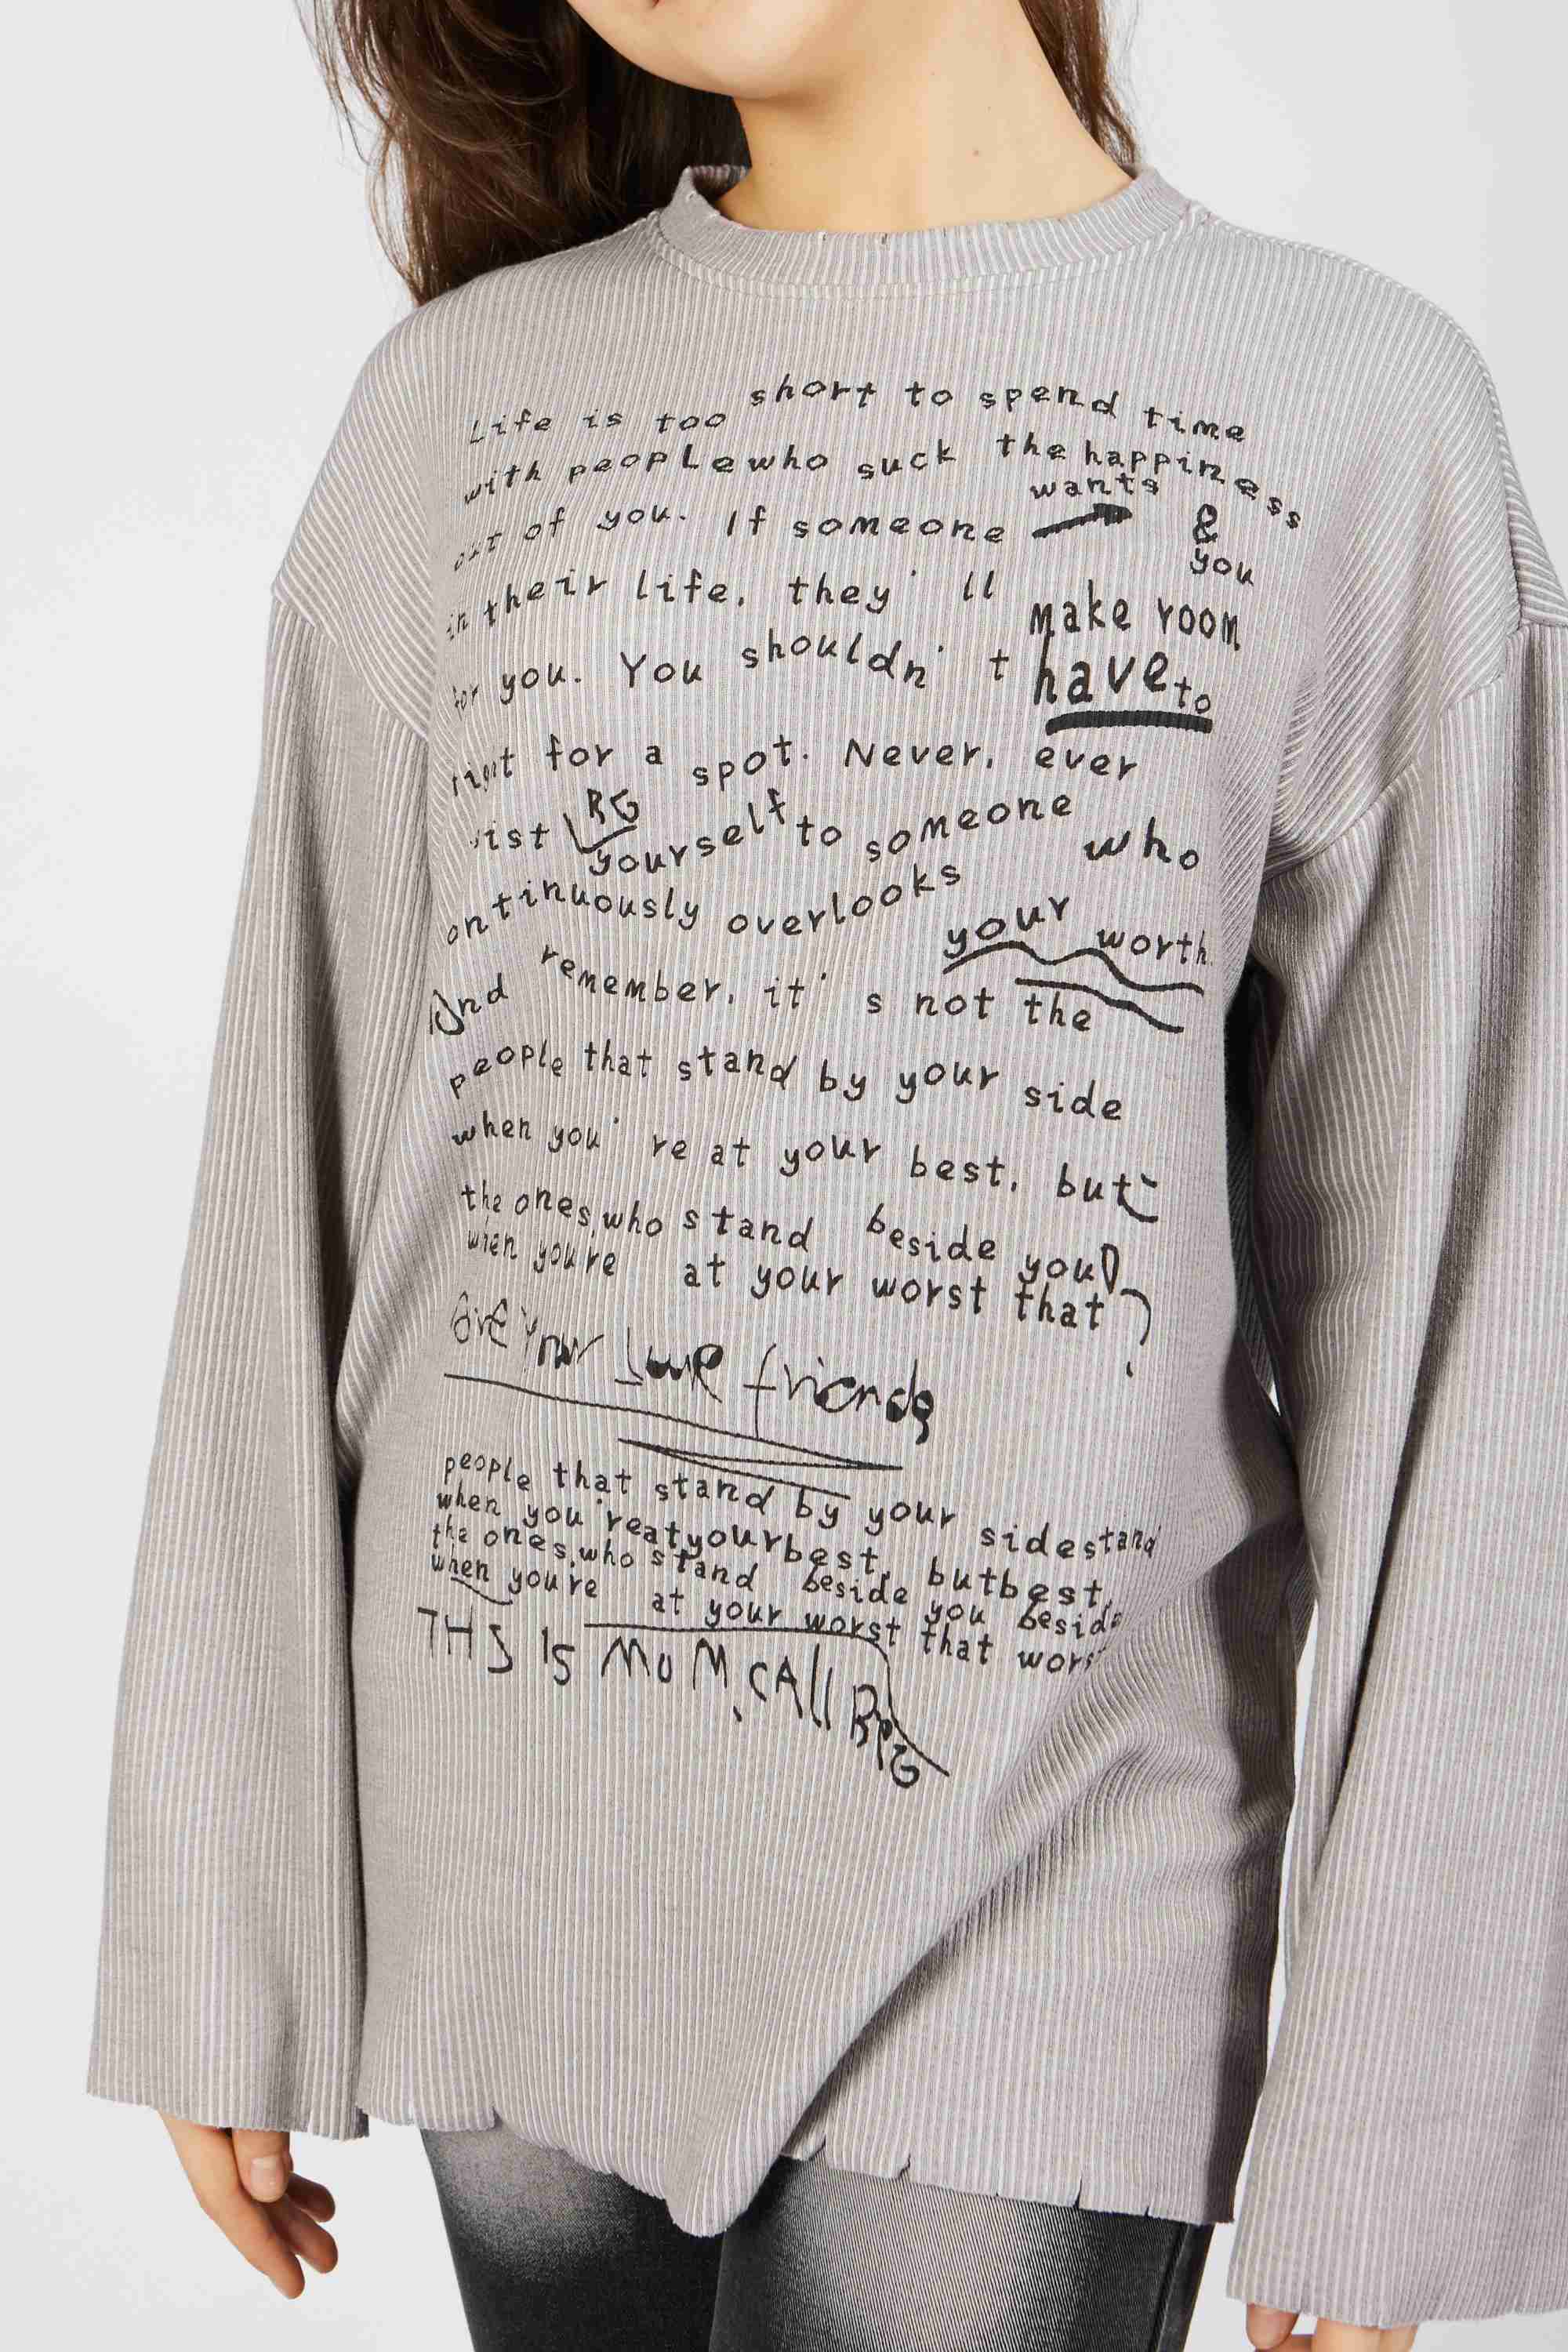 Life is too short to spend time
with people who suck the happiness
out of you. If someone wants & you
in their life, they'll make room
for you. You shouldn't have to
for a spot. Never, ever
ist RG yourself to someone who
ontinuously overlooks your worth
And remember, it's not the
people that stand by your side
when you're at your best, but
the ones, who stand beside you
when youre at your worst that
are your friends
people that stand by your sidestand
when you'reatyourbest, butbest,
the ones, who stand beside you beside
when youre at your worst that wors
THS IS MUM. CAll BRG